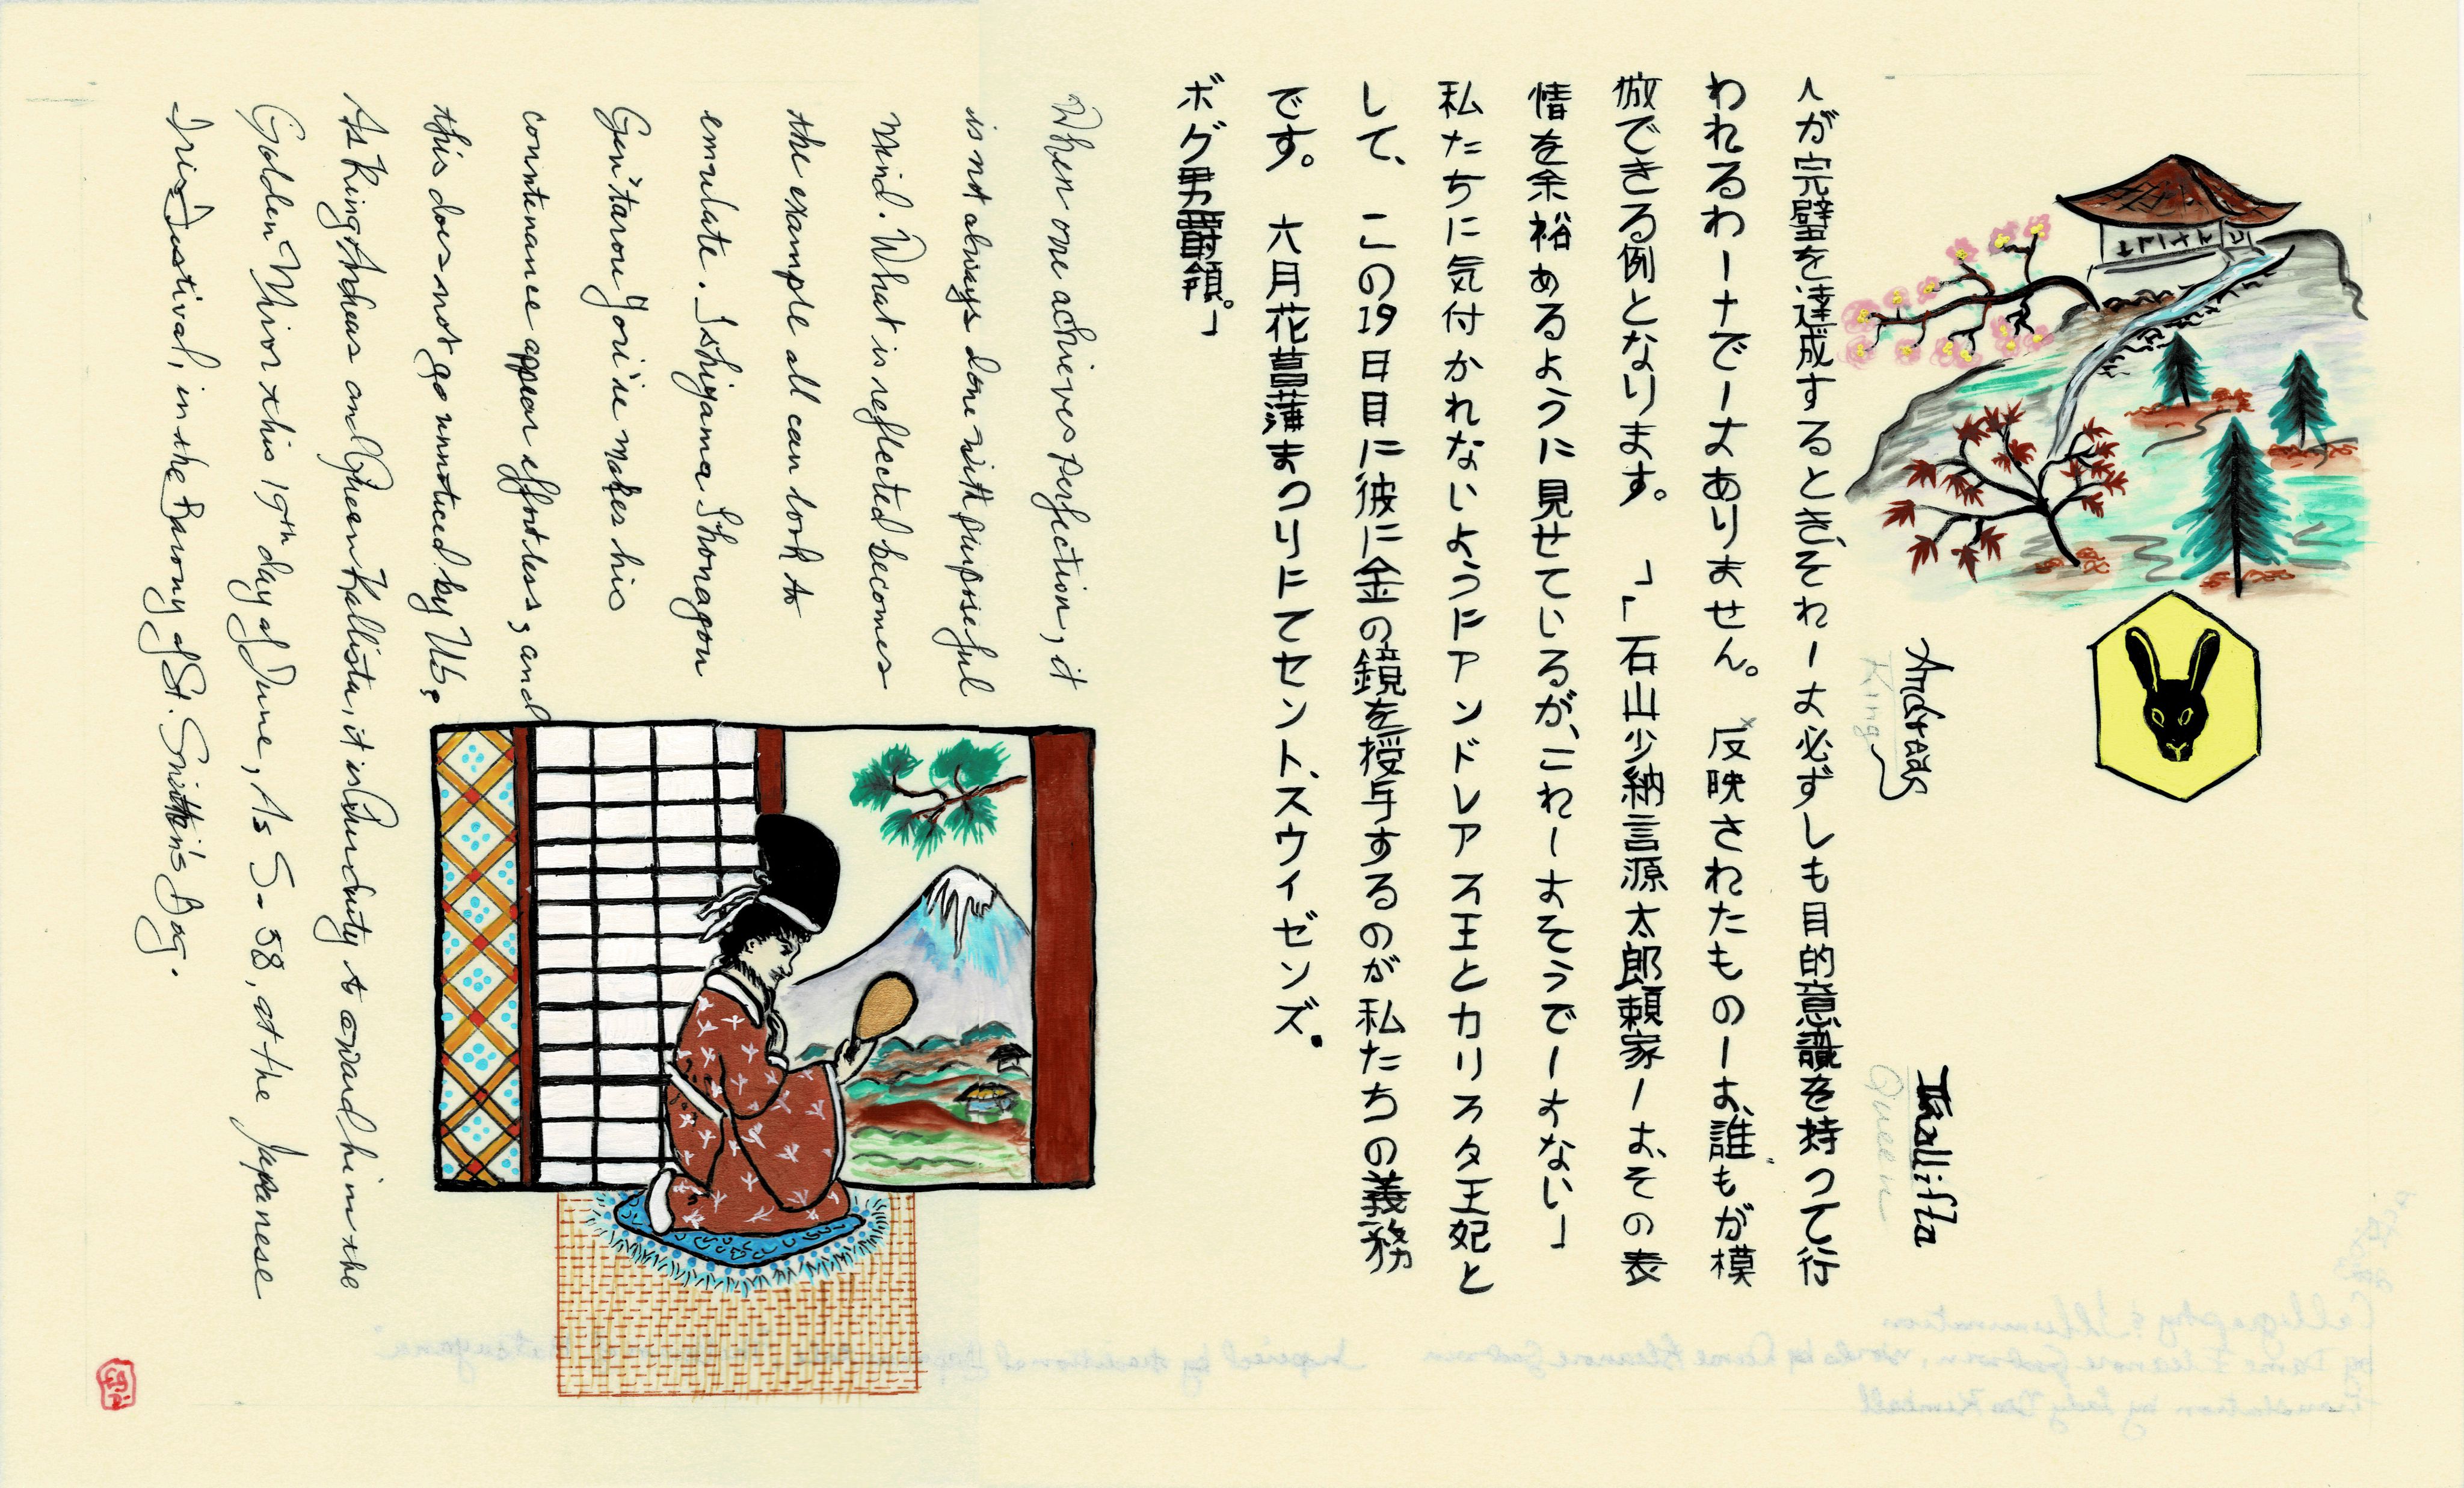 人が完璧を達成するとき、それーよ必ずしも目的意識を持って行
われるわーナでーよありません。 反映されたものーよ、誰もが模
倣できる例となります。 」「石山少納言源太郎頼家ーよ、その表
情を余裕あるように見せているが、これーよそうでーよない」
私たちに気付かれないようにアンドレアス王とカリスタ王妃と
して、 この19日目に彼に金の鏡を授与するのが私たちの義務
です。 六月花菖蒲まつりにてセント、スウイゼンズ.
ボグ男爵領。」
Andreas
King
Kallista
Queen
When one achieves perfection, it
is not always done with purposeful
mind. What is reflected becomes
the example all can look to
emulate. Ishiyama Shonagon
Gen'tarou Yori'ie makes his
countenance appear effortless, and
this does not go unnoticed by Us.
As King Andreas and Queen Kallista, it is Our duty to award him the
Golden Mirror this 19th day of June, As S- 58, at the Japanese
Iris Festival, in the Barony of St. Swithin's Bog.
Calligraphy & Illumination
by Dame Eleanore Godwin, words by Dame Eleanore Godwin
translation by Lady Dea Kimball